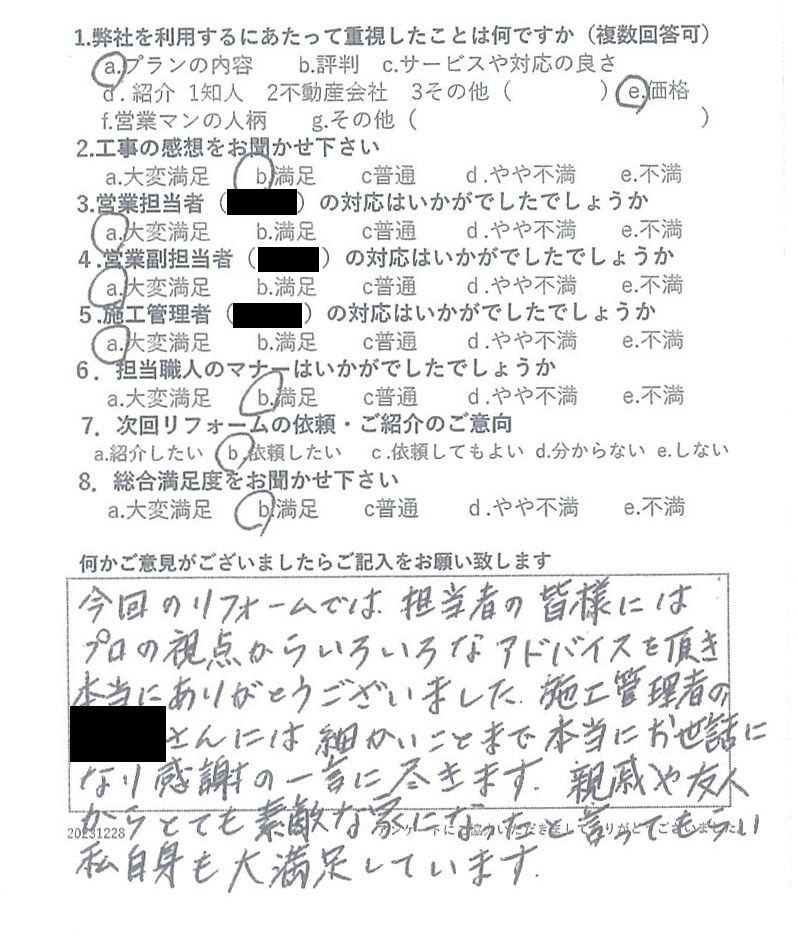 1.弊社を利用するにあたって重視したことは何ですか（複数回答可）
a.プランの内容　b.評判　c.サービスや対応の良さ
d.紹介　1知人　2不動産会社　3その他（　　　）e.価格
f.営業マンの人柄　g.その他（　　　）
2.工事の感想をお聞かせ下さい
a.大変満足　b.満足　c普通　d.やや不満　e.不満
3.営業担当者（　　　）の対応はいかがでしたでしょうか
a.大変満足　b.満足　c普通　d.やや不満　e.不満
4.営業副担当者（　　　）の対応はいかがでしたでしょうか
a.大変満足　b.満足　c普通　d.やや不満　e.不満
5.施工管理者（　　　）の対応はいかがでしたでしょうか
a.大変満足　b.満足　c普通　d.やや不満　e.不満
6．担当職人のマナーはいかがでしたでしょうか
a.大変満足　b.満足　c普通　d.やや不満　e.不満
7．次回リフォームの依頼・ご紹介のご意向
a.紹介したい　b.依頼したい　c.依頼してもよい　d.分からない　e.しない
8．総合満足度をお聞かせ下さい
a.大変満足　b.満足　c普通　d.やや不満　e.不満
何かご意見がございましたらご記入をお願い致します
今回のリフォームでは、担当者の皆様には
プロの視点からいろいろなアドバイスを頂き
本当にありがとうございました。施工管理者の
さんには細かいことまで本当にお世話に
なり感謝の一言に尽きます。親戚や友人
からとても素敵な家になったと言ってもらい
20231228　アンケートにご協力いただきましてありがとうございました
私自身も大満足しています。